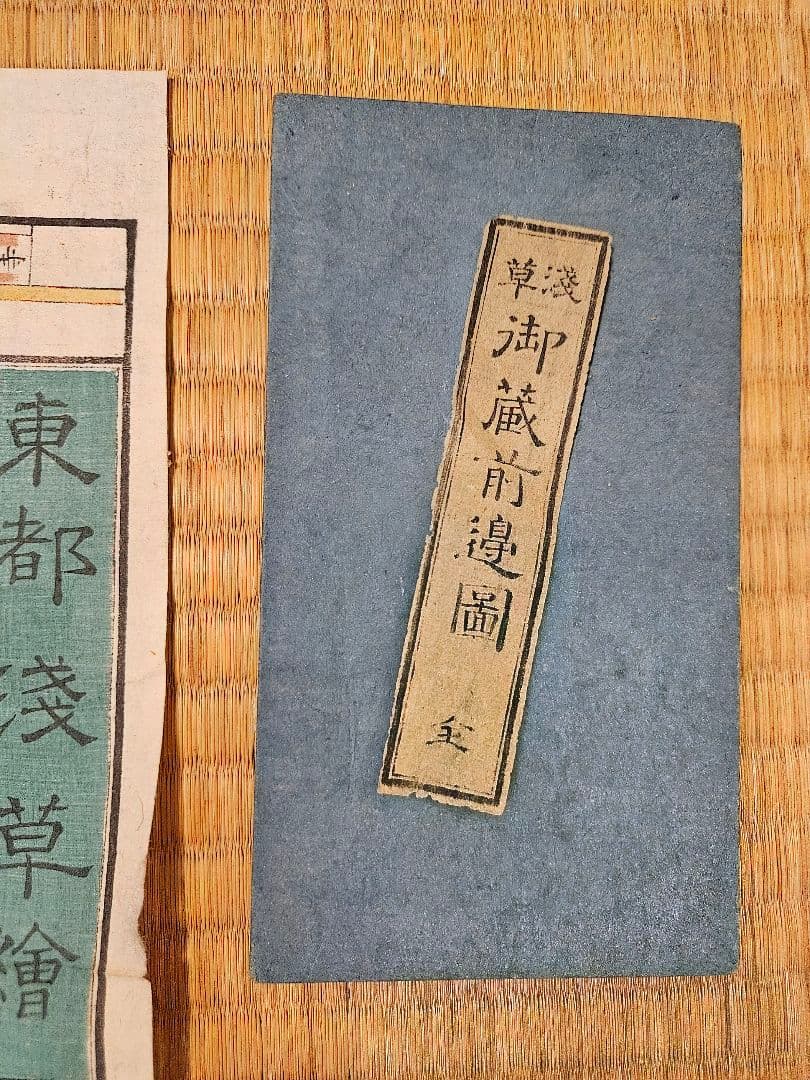 淺草
御藏前邉圖
全
東都淺草繪